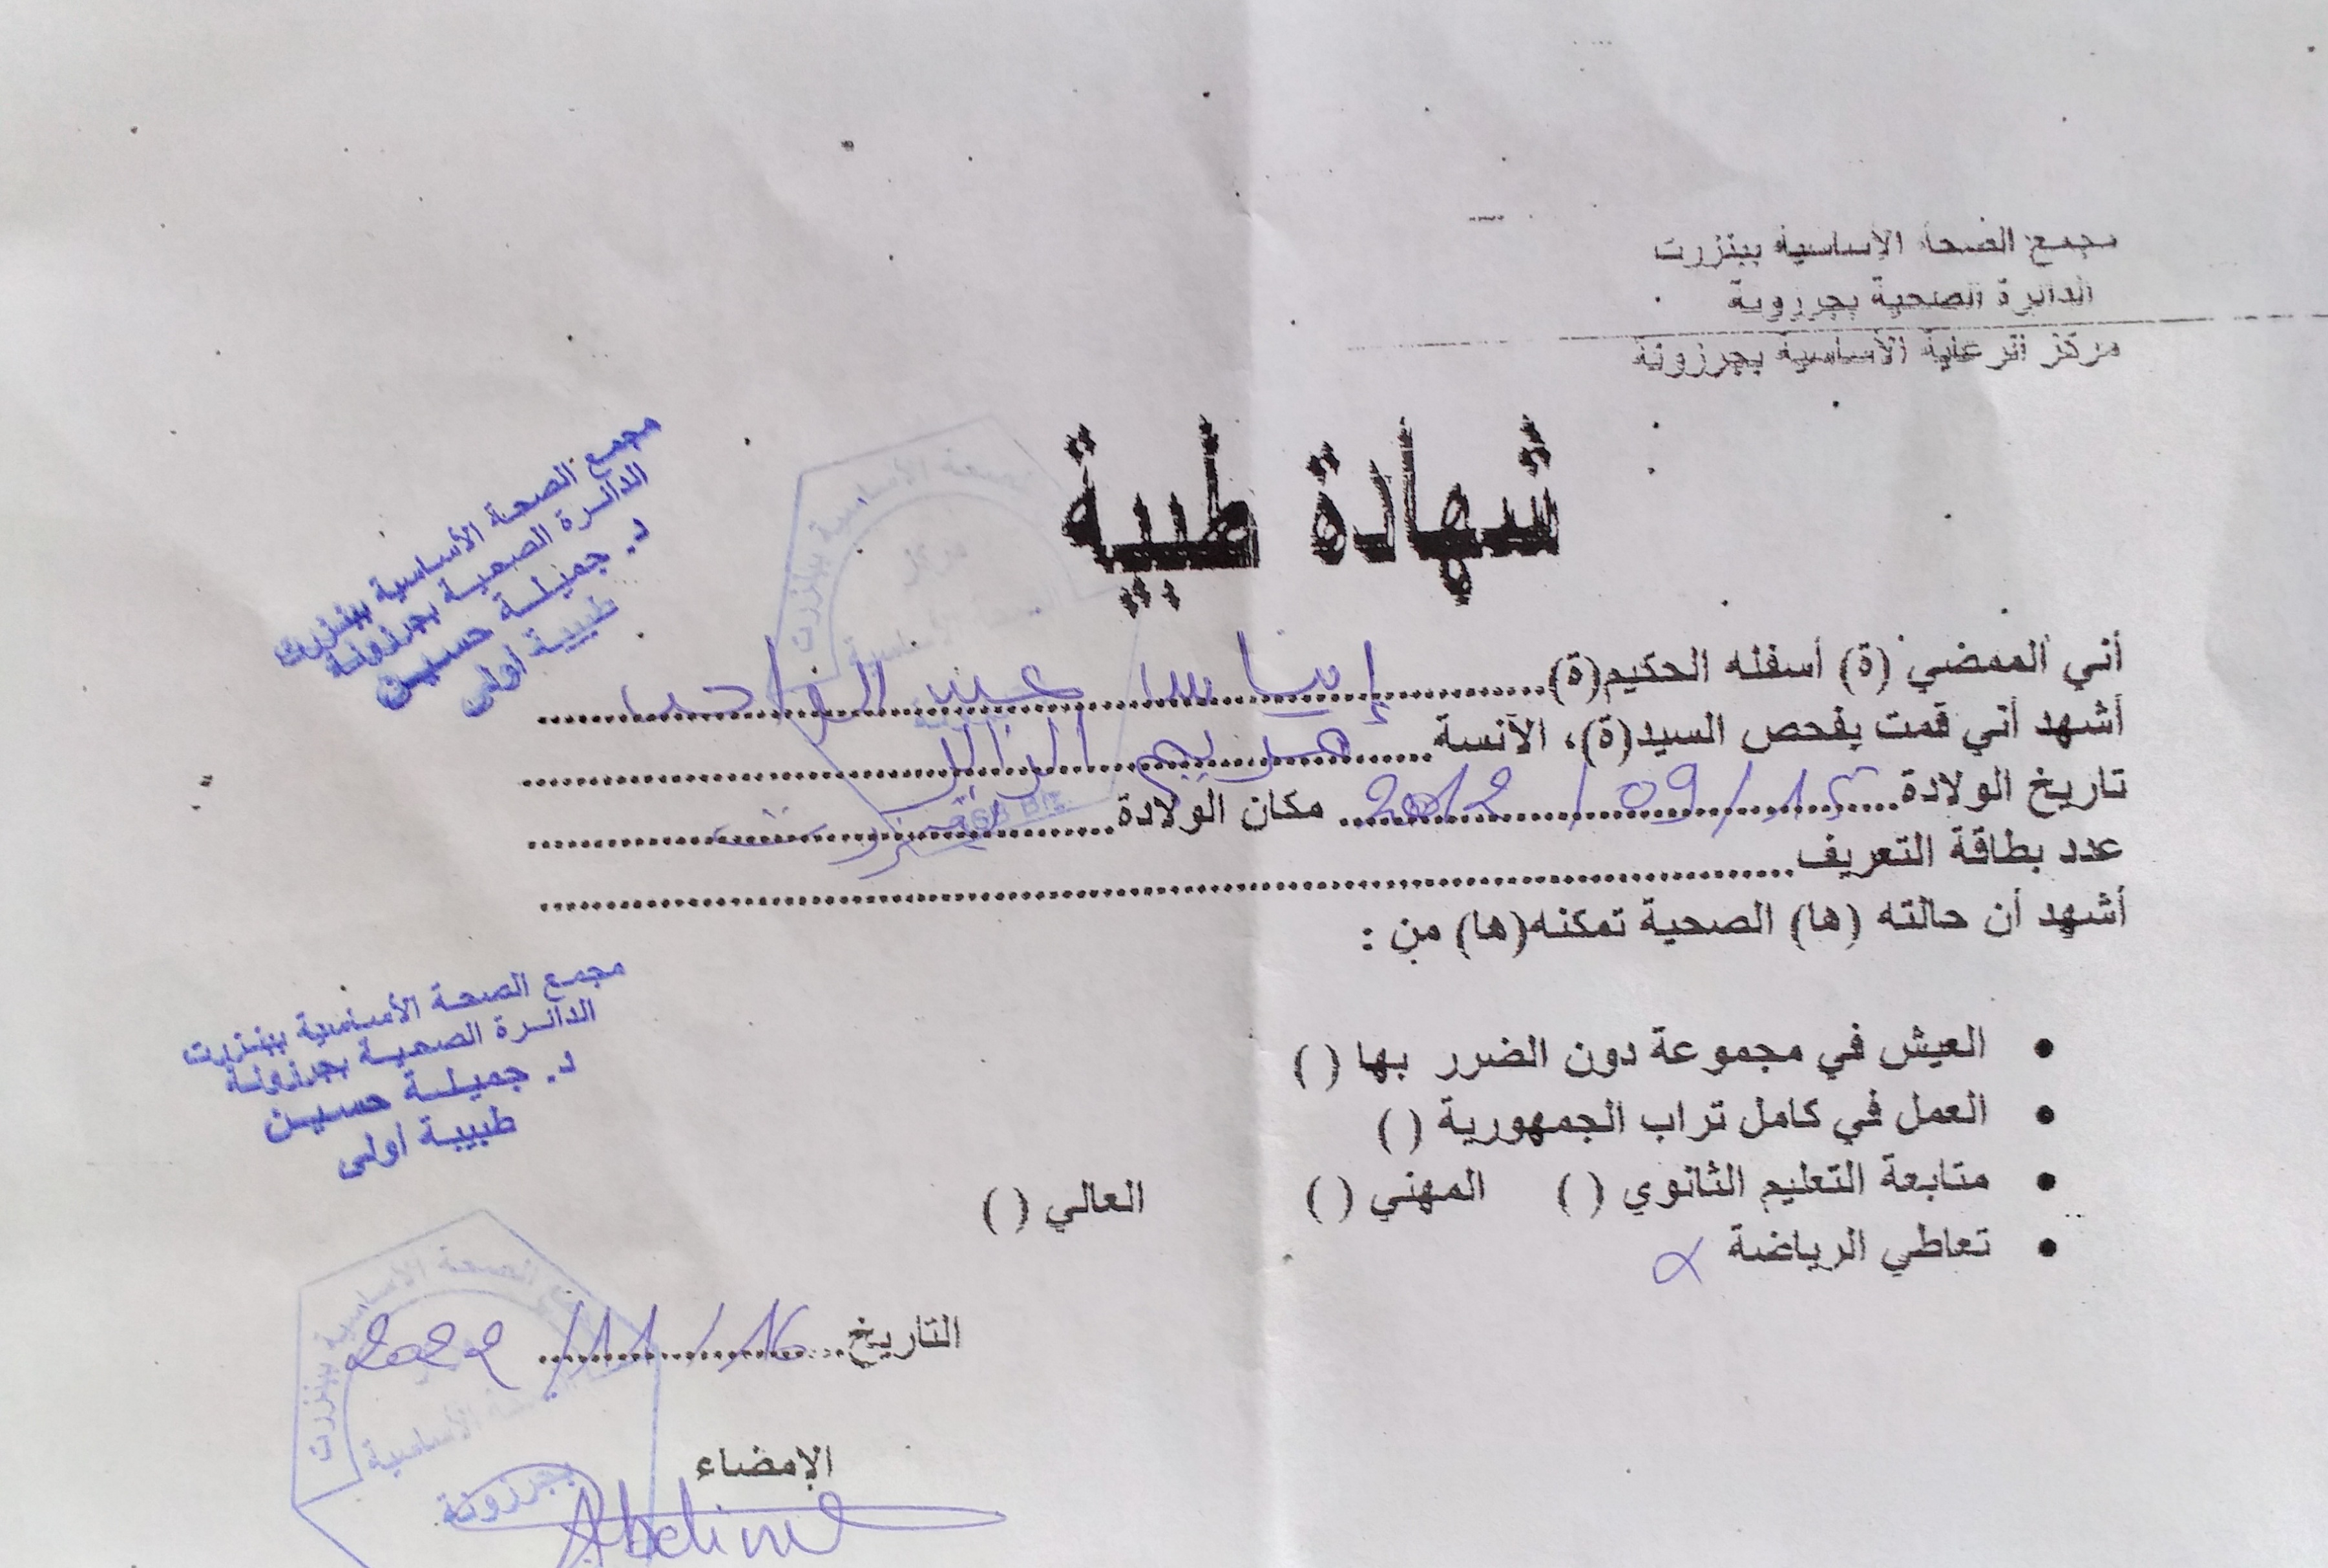 مجمع الصحة الأساسية ببنزرت
الدائرة الصحية بجرزونة
مركز الرعاية الأساسية بجرزونة
شهادة طبية
مجمع الصحة الأساسية ببنزرت
الدائرة الصحية بجرزونة
د. جميلة حسين
طبيبة أولى
أني الممضي (ة) أسفله الحكيم(ة) إيناس عبد الواحد
أشهد أني قمت بفحص السيد(ة)، الآنسة مريم
تاريخ الولادة 15/09/2012 مكان الولادة بنزرت
عدد بطاقة التعريف
أشهد أن حالته (ها) الصحية تمكنه(ها) من :
• العيش في مجموعة دون الضرر بها ( )
• العمل في كامل تراب الجمهورية ( )
• متابعة التعليم الثانوي ( ) المهني ( ) العالي ( )
• تعاطي الرياضة x
مجمع الصحة الأساسية ببنزرت
الدائرة الصحية بجرزونة
د. جميلة حسين
طبيبة أولى
التاريخ 16/11/2022
الإمضاء
بجرزونة